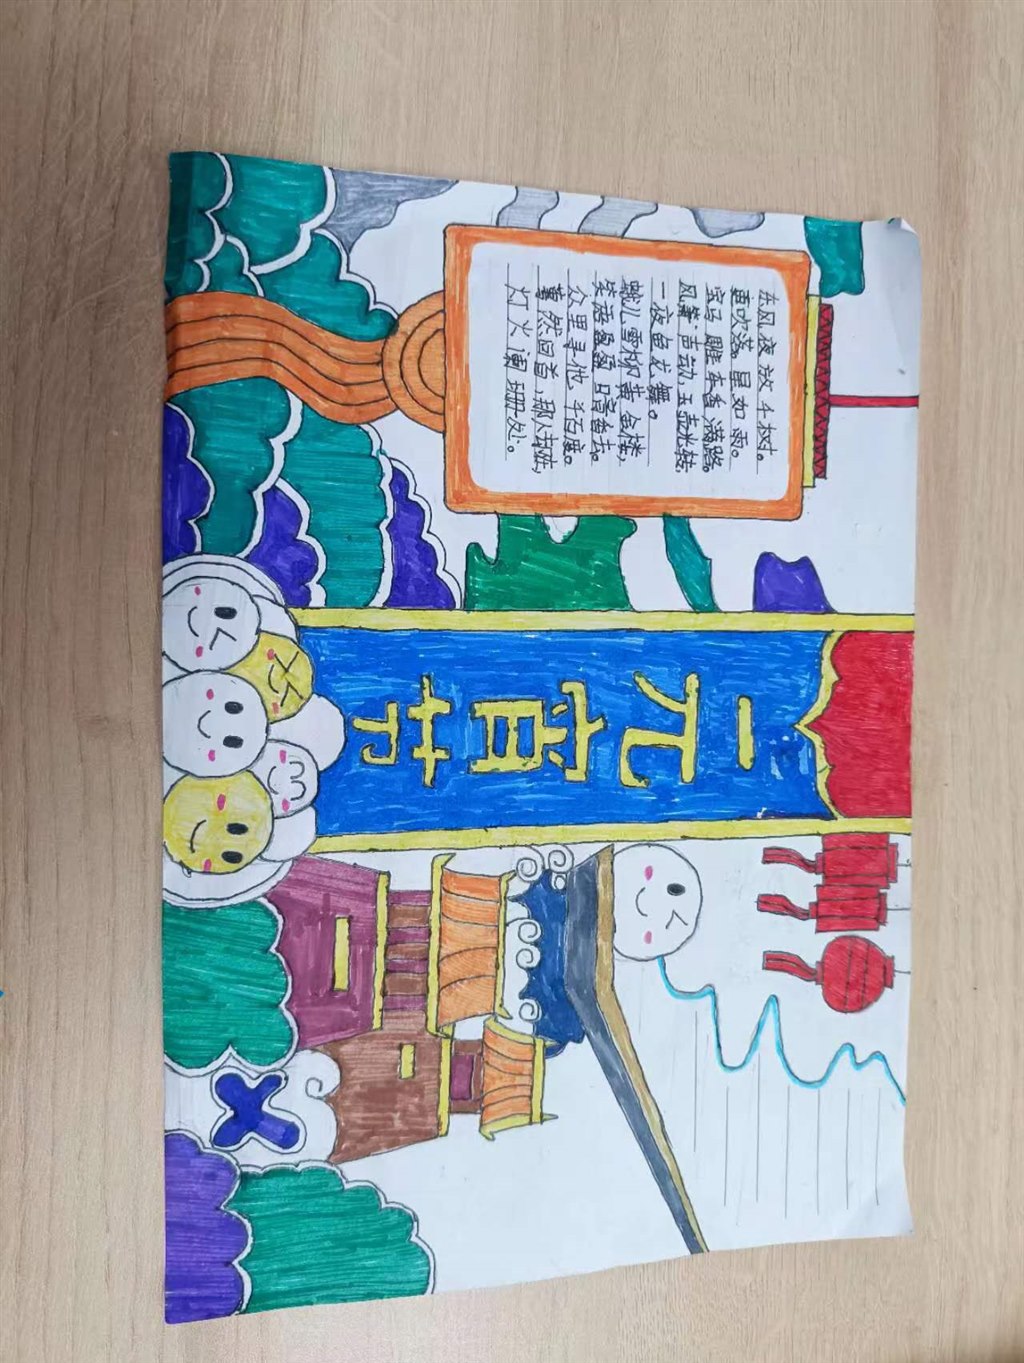 东风夜放千树。
更吹落。星如雨。
宝马雕车香满路。
风箫声动,玉壶光转.
一夜鱼龙舞。
蛾儿雪柳黄金楼,
笑语盈盈暗香去。
众里寻他千百度。
蓦然回首,那人却在,
灯火阑珊处。
元宵节